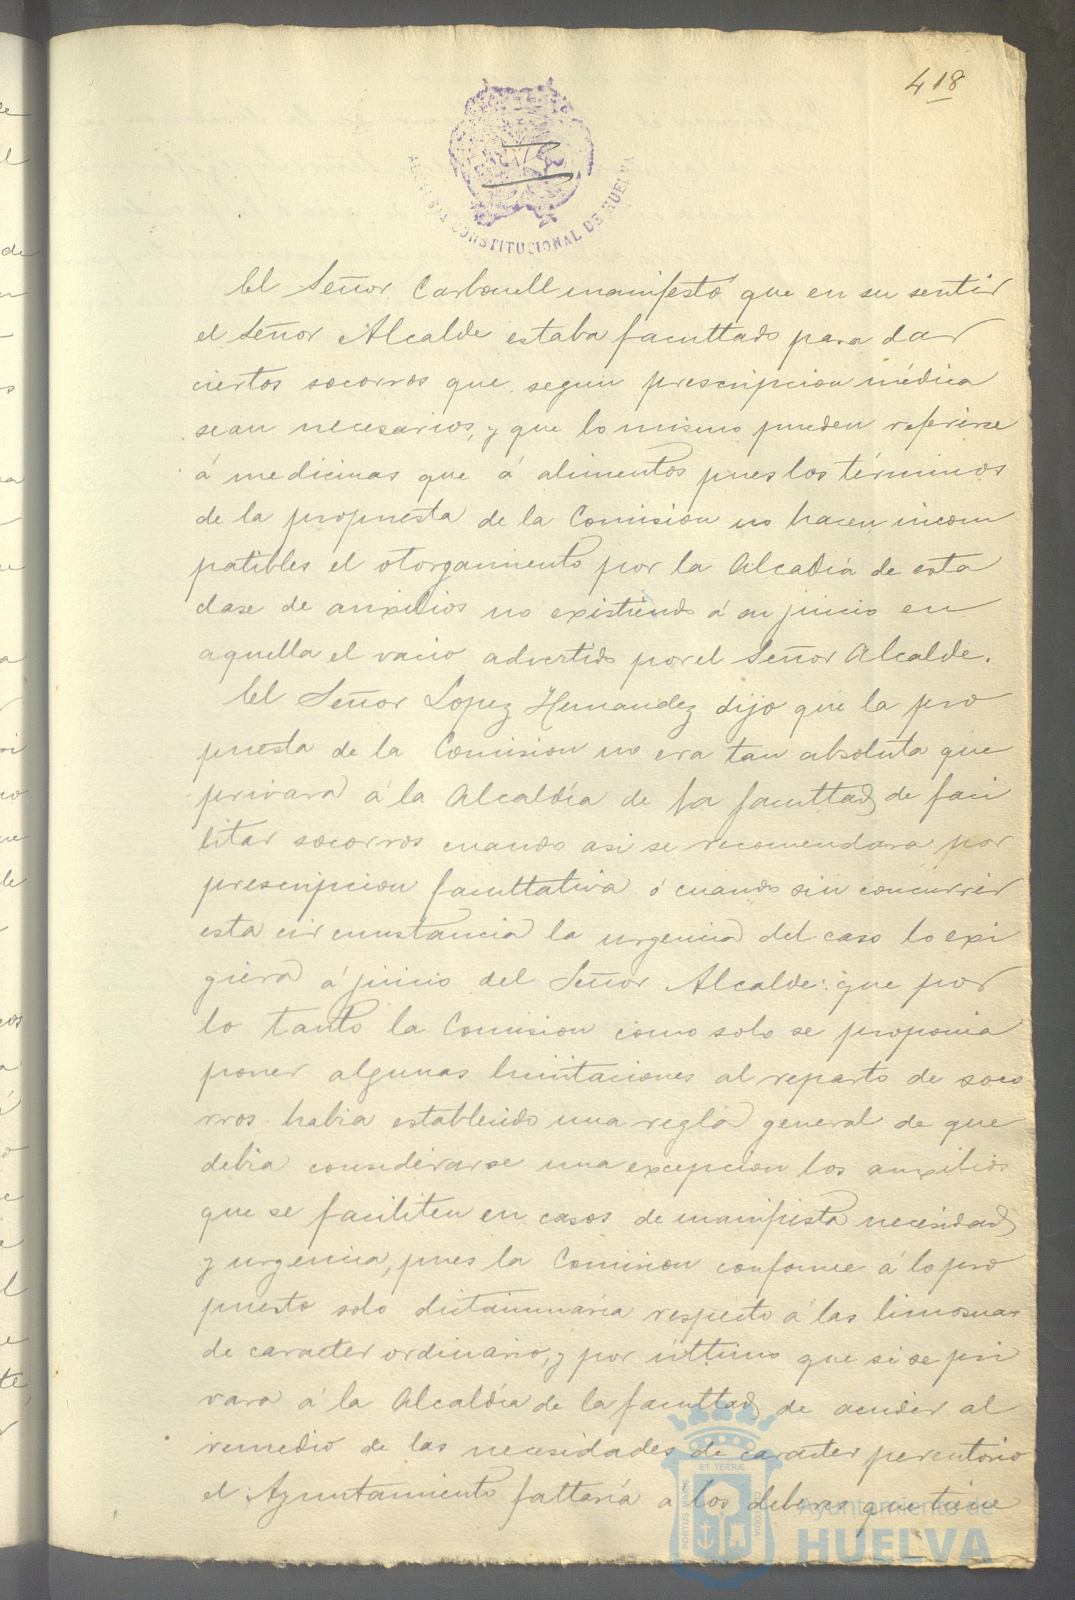 418
CONSTITUCIONAL DE HUELVA
El Señor Carbonell manifestó que en su sentir
el Señor Alcalde estaba facultado para dar
ciertos socorros que segun prescripcion médica
sean necesarios, y que lo mismo pueden referirse
á medicinas que á alimentos pues los términos
de la propuesta de la Comision no hacen incom
patibles el otorgamiento por la Alcaldia de esta
clase de auxilios no existiendo á su juicio en
aquella el vacio advertido por el Señor Alcalde.
El Señor Lopez Hernandez dijo que la pro
puesta de la Comision no era tan absoluta que
privara á la Alcaldía de la facultad de faci
litar socorros cuando asi se recomendara por
prescripcion facultativa ó cuando sin concurrir
esta circunstancia la urgencia del caso lo exi
giera á juicio del Señor Alcalde: que por
lo tanto la Comision como solo se proponia
poner algunas limitaciones al reparto de soco
rros habia establecido una regla general de que
debia considerarse una excepcion los auxilios
que se faciliten en casos de manifiesta necesidad
y urgencia, pues la Comision conforme á lo pro
puesto solo dictaminaria respecto á las limosnas
de caracter ordinario, y por último que si se pri
vara á la Alcaldía de la facultad de acudir al
remedio de las necesidades de caracter perentorio
el Ayuntamiento faltaría a los deberes que tiene
ET TERRÆ
PORTUS MARIS
CUSTODIA
Ayuntamiento de
HUELVA